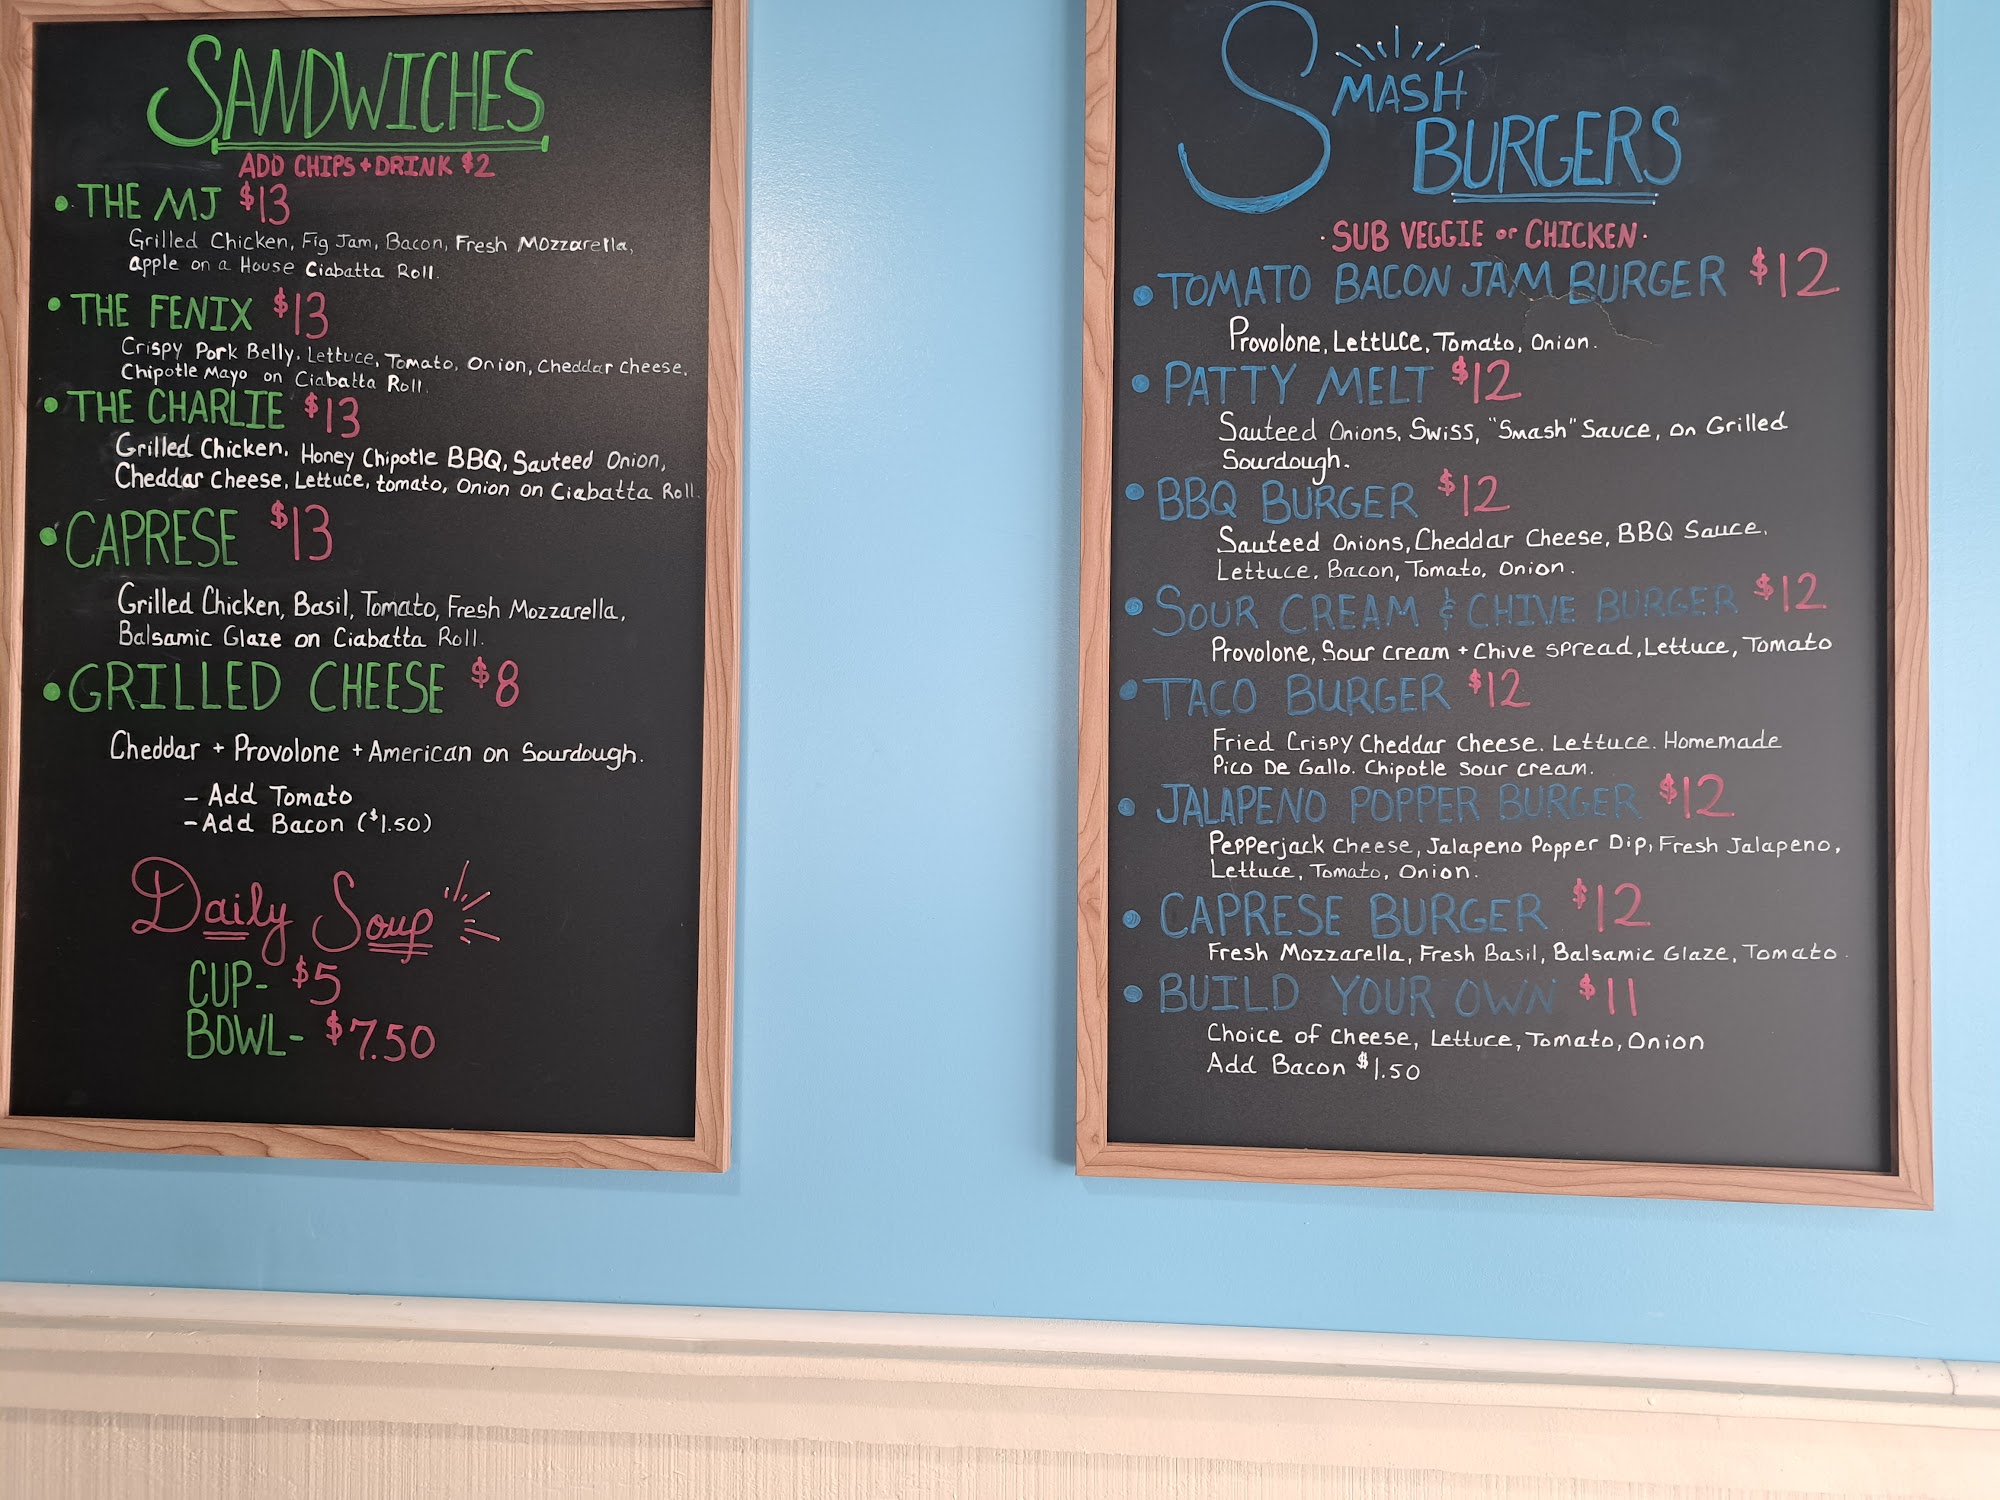 SANDWICHES
ADD CHIPS + DRINK $2
• THE MJ $13
Grilled Chicken, Fig Jam, Bacon, Fresh Mozzarella,
apple on a House Ciabatta Roll.
• THE FENIX $13
Crispy Pork Belly, Lettuce, Tomato, Onion, Cheddar Cheese,
Chipotle Mayo on Ciabatta Roll.
• THE CHARLIE $13
Grilled Chicken, Honey Chipotle BBQ, Sauteed Onion,
Cheddar Cheese, Lettuce, tomato, Onion on Ciabatta Roll.
• CAPRESE $13
Grilled Chicken, Basil, Tomato, Fresh Mozzarella,
Balsamic Glaze on Ciabatta Roll.
• GRILLED CHEESE $8
Cheddar + Provolone + American on Sourdough.
- Add Tomato
- Add Bacon ($1.50)
Daily Soup
CUP- $5
BOWL- $7.50
SMASH
BURGERS
· SUB VEGGIE or CHICKEN ·
• TOMATO BACON JAM BURGER $12
Provolone, Lettuce, Tomato, Onion.
• PATTY MELT $12
Sauteed Onions, Swiss, "Smash" Sauce, on Grilled
Sourdough.
• BBQ BURGER $12
Sauteed Onions, Cheddar Cheese, BBQ Sauce,
Lettuce, Bacon, Tomato, Onion.
• SOUR CREAM & CHIVE BURGER $12
Provolone, Sour cream + Chive spread, Lettuce, Tomato
• TACO BURGER $12
Fried Crispy Cheddar Cheese. Lettuce. Homemade
Pico De Gallo. Chipotle Sour cream.
• JALAPENO POPPER BURGER $12
Pepperjack Cheese, Jalapeno Popper Dip, Fresh Jalapeno,
Lettuce, Tomato, Onion.
• CAPRESE BURGER $12
Fresh Mozzarella, Fresh Basil, Balsamic Glaze, Tomato.
• BUILD YOUR OWN $11
Choice of Cheese, Lettuce, Tomato, Onion
Add Bacon $1.50